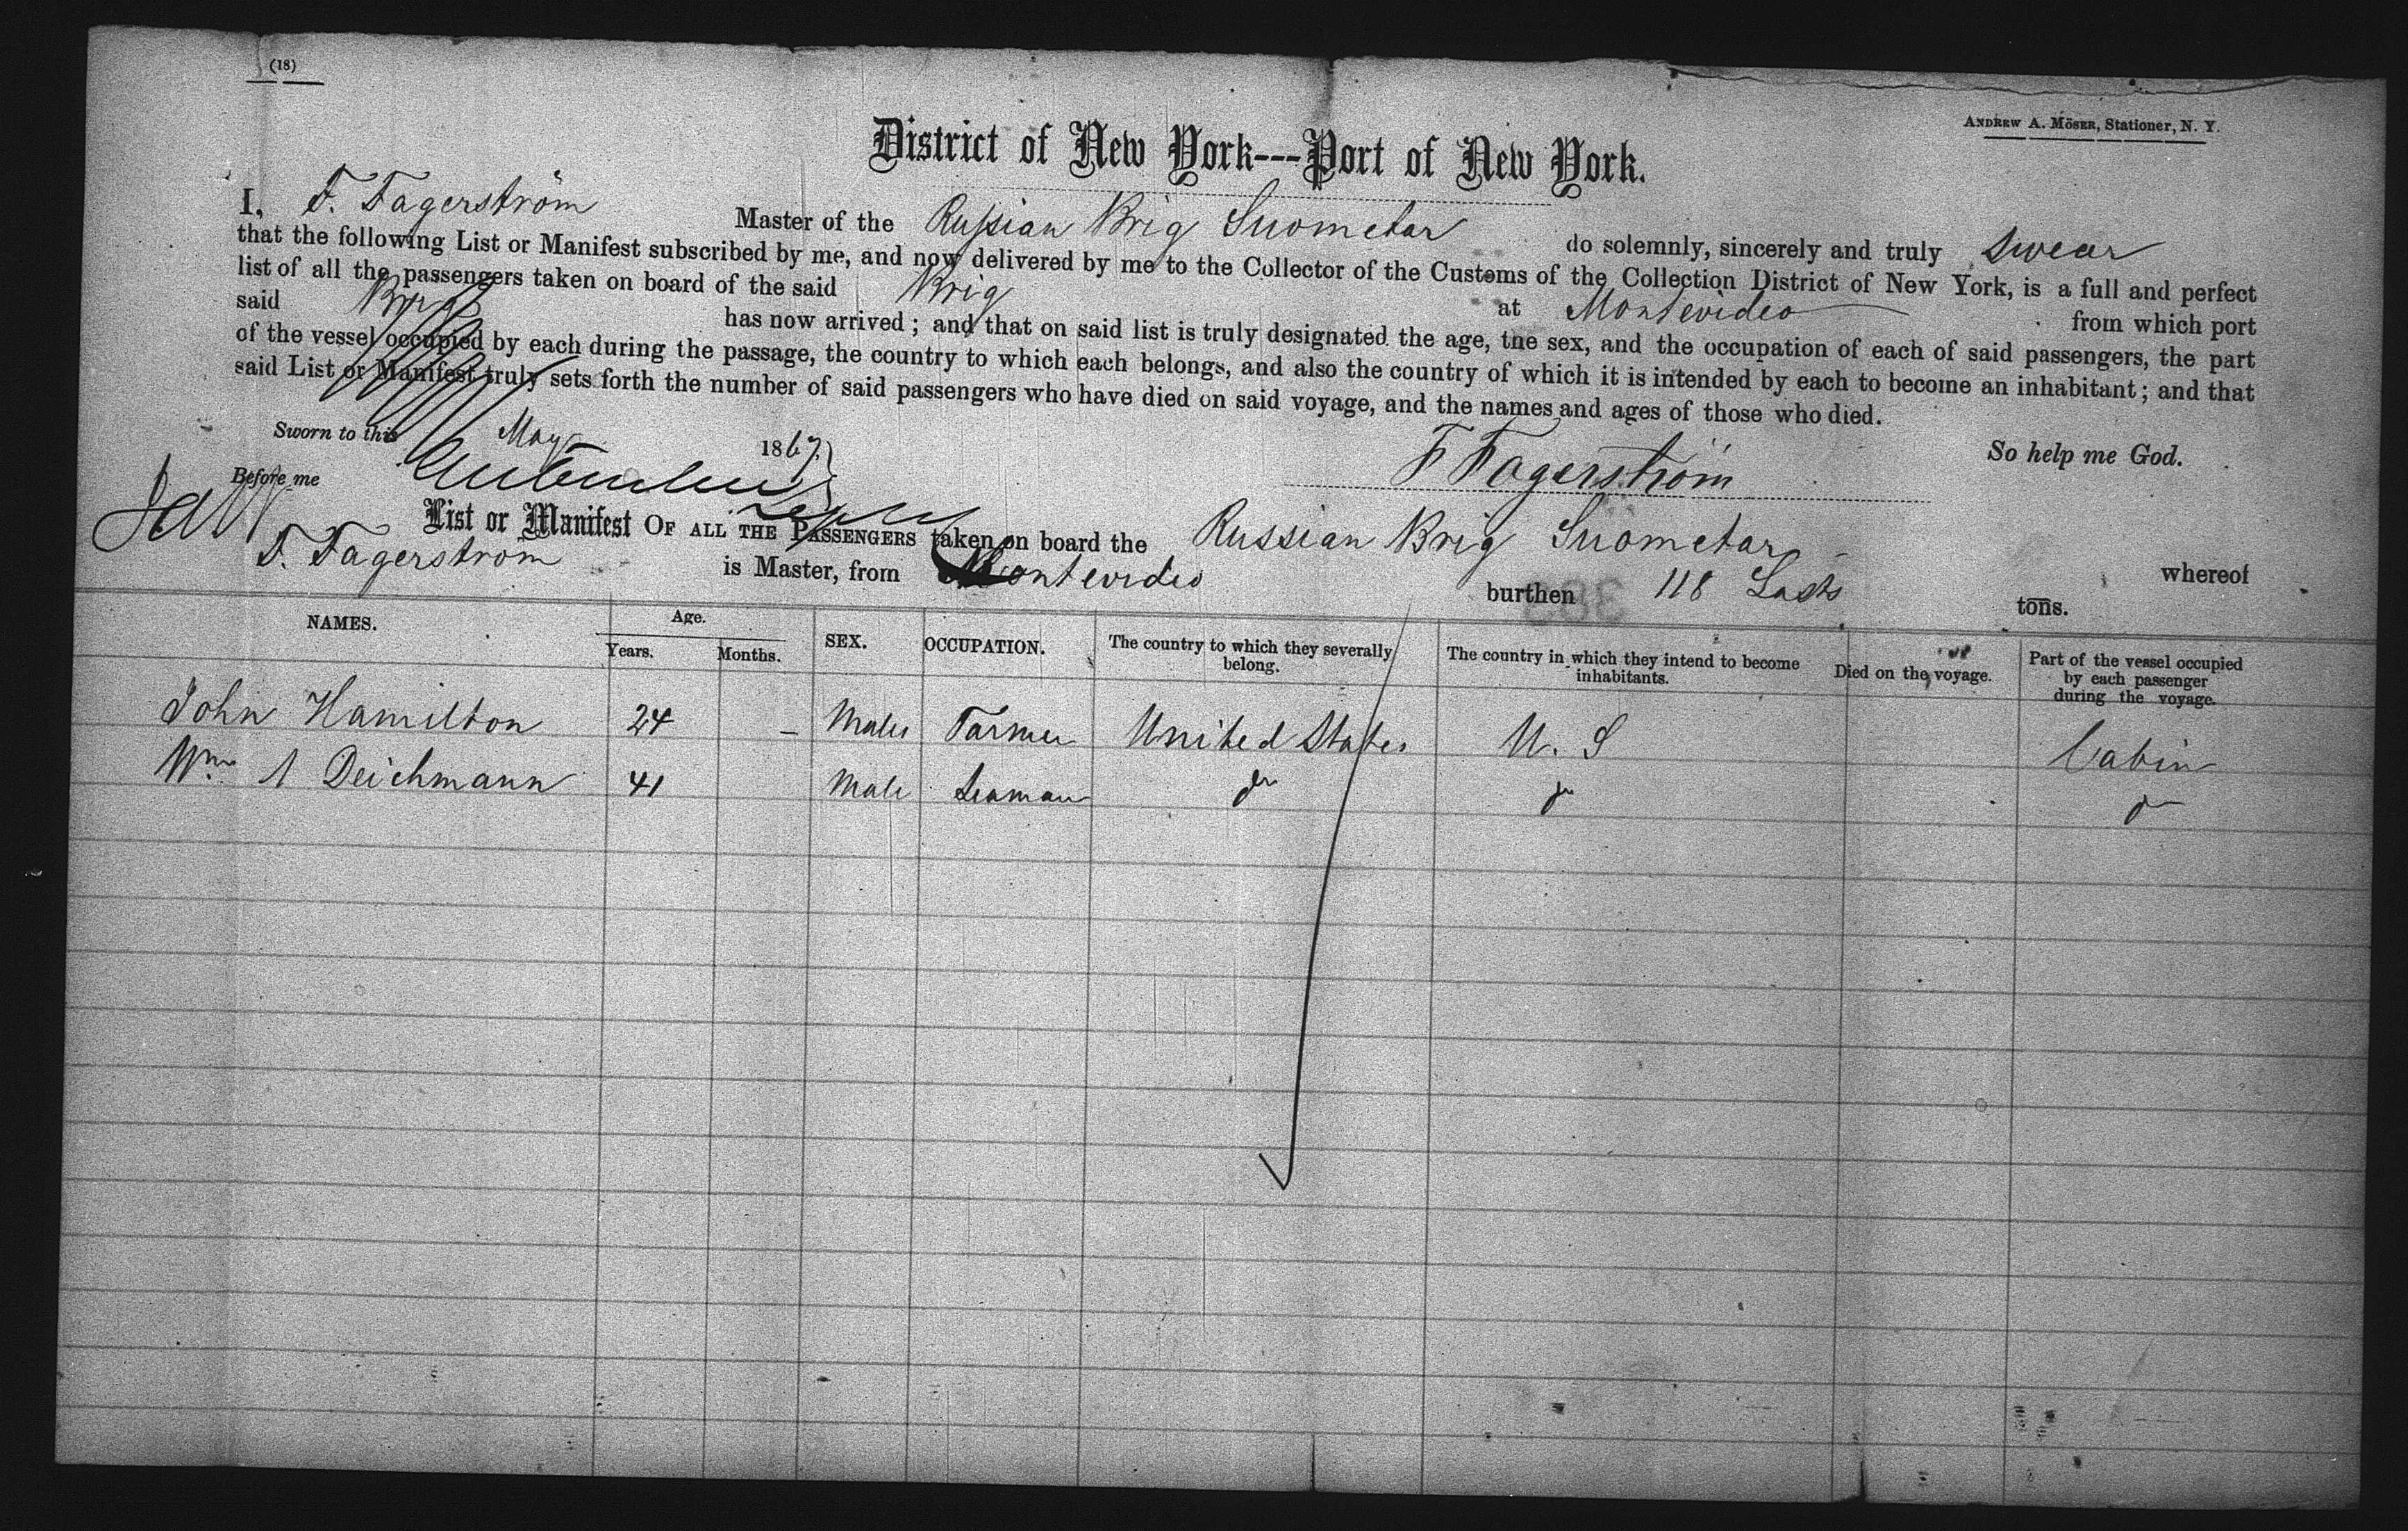 (18)
ANDREW A. MÖSER, Stationer, N. Y.
District of New York---Port of New York.
I, F. Fagerström Master of the Russian Brig Suometar do solemnly, sincerely and truly swear
that the following List or Manifest subscribed by me, and now delivered by me to the Collector of the Customs of the Collection District of New York, is a full and perfect
list of all the passengers taken on board of the said Brig at Montevideo from which port
said Brig has now arrived; and that on said list is truly designated the age, the sex, and the occupation of each of said passengers, the part
of the vessel occupied by each during the passage, the country to which each belongs, and also the country of which it is intended by each to become an inhabitant; and that
said List or Manifest truly sets forth the number of said passengers who have died on said voyage, and the names and ages of those who died.
Sworn to this May 1867. So help me God.
Before me F Fagerström
List or Manifest OF ALL THE PASSENGERS taken on board the Russian Brig Suometar whereof
F. Fagerström is Master, from Montevideo burthen 118 Lasts tons.
NAMES. Age. Years. Months. SEX. OCCUPATION. The country to which they severally belong. The country in which they intend to become inhabitants. Died on the voyage. Part of the vessel occupied by each passenger during the voyage.
John Hamilton 24 - Males Farmer United States U. S Cabin
Wm A Deichmann 41 Male Seaman do do do